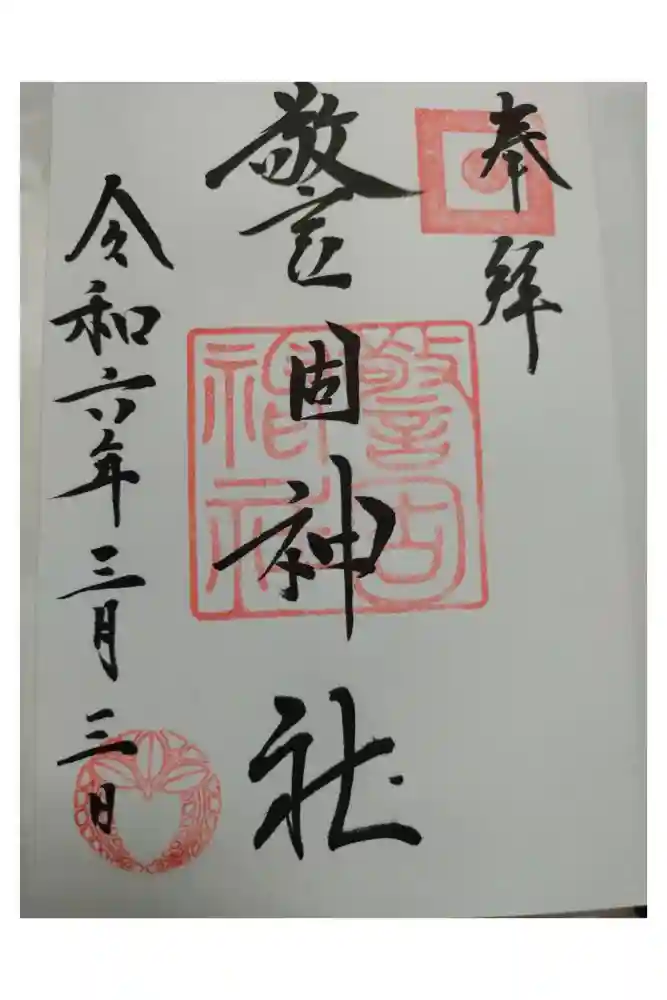 奉拝
警固神社
警固神社
令和六年三月三日